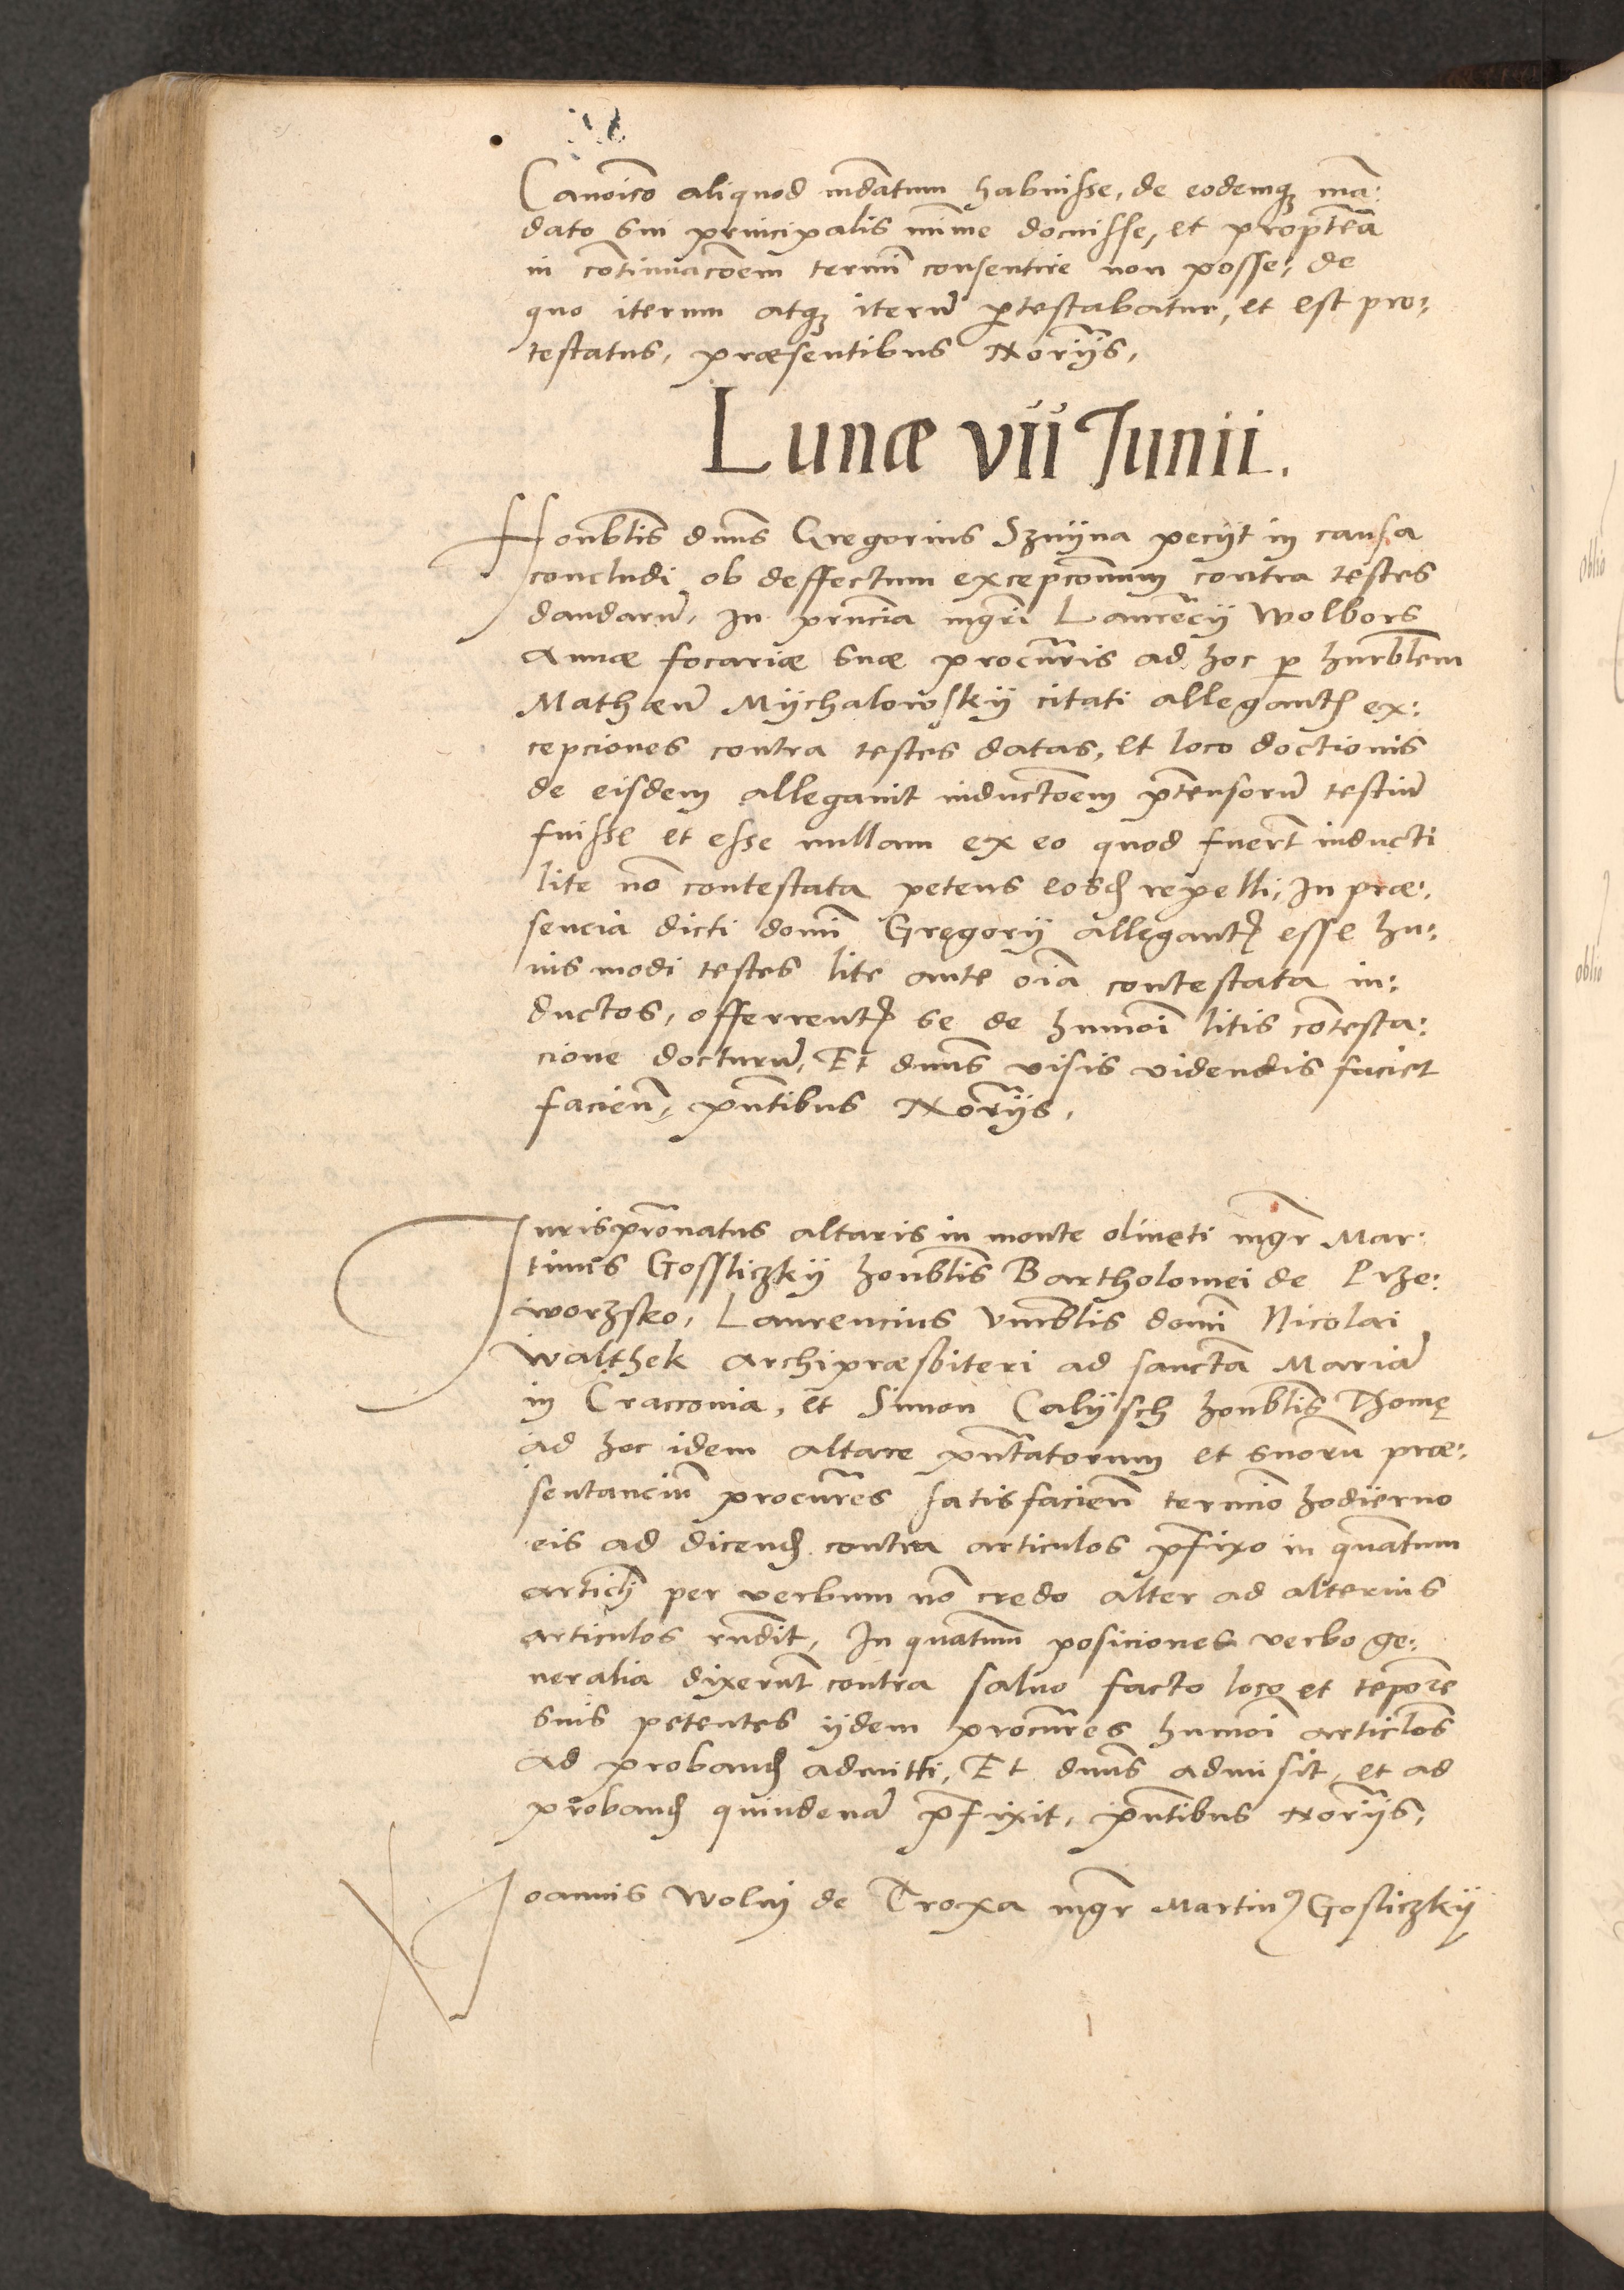 Canoico aliquod mdatum habuisse, de eodemq₃ ma:
dato sui principalis mime docuisse, et proptea
in continuacoem termi consentire non posse, de
quo iterum atq₃ iteru ptestabatur, et est pro:
testatus, præsentibus Noriis,
Lunæ VII Junii.
Honblis dnus Gregorius Sznyna peciit in causa
concludi ob deffectum excepconum contra testes
dandaru, In pruncia mgri Laurecij Wolbors
Annæ focariæ suæ procuris ad hoc p hnrblem
Mathæu Mychalowsky citati allegantis ex:
cepciones contra testes datas, Et loco doctionis
de eisdem allegauit inductoem ptensoru testiu
fuisse et esse nullam ex eo quod fuert inducti
lite no contestata petens eosd repelli, In præ:
sencia dicti domi Gregorij allegantis esse hu:
ius modi testes lite ante oia contestata in:
ductos, offerentis se de humoi litis contesta:
cione docturu, Et dnus visis videndis faciet
facien, pntibus Noriis,
Jurisprонatus altaris in monte oliueti mgr Mar:
tinus Gossliczky honblis Bartholomei de Prze:
worzsko, Laurencius Vnrblis domi Nicolai
Walthek Archipræsbiteri ad sancta Maria
in Cracconia, et Simon Calysch honblis Thomę
ad hoc idem altare pntatorum et suoru præ:
sentanciu procures satisfacien termio hodierno
eis ad dicend contra articulos pfixo in quatum
articli per verbum no credo alter ad alterius
articulos rndit, In quatum posiciones verbo ge:
neralia dixerut contra saluo facto loco et tempore
suis petentes ijdem procures humoi articlos
ad proband admitti, Et dnus admisit, et ad
proband quindena pfixit, pntibus Noriis,
Joannis Wolny de Troxa mgr Martin9 Gosliczky